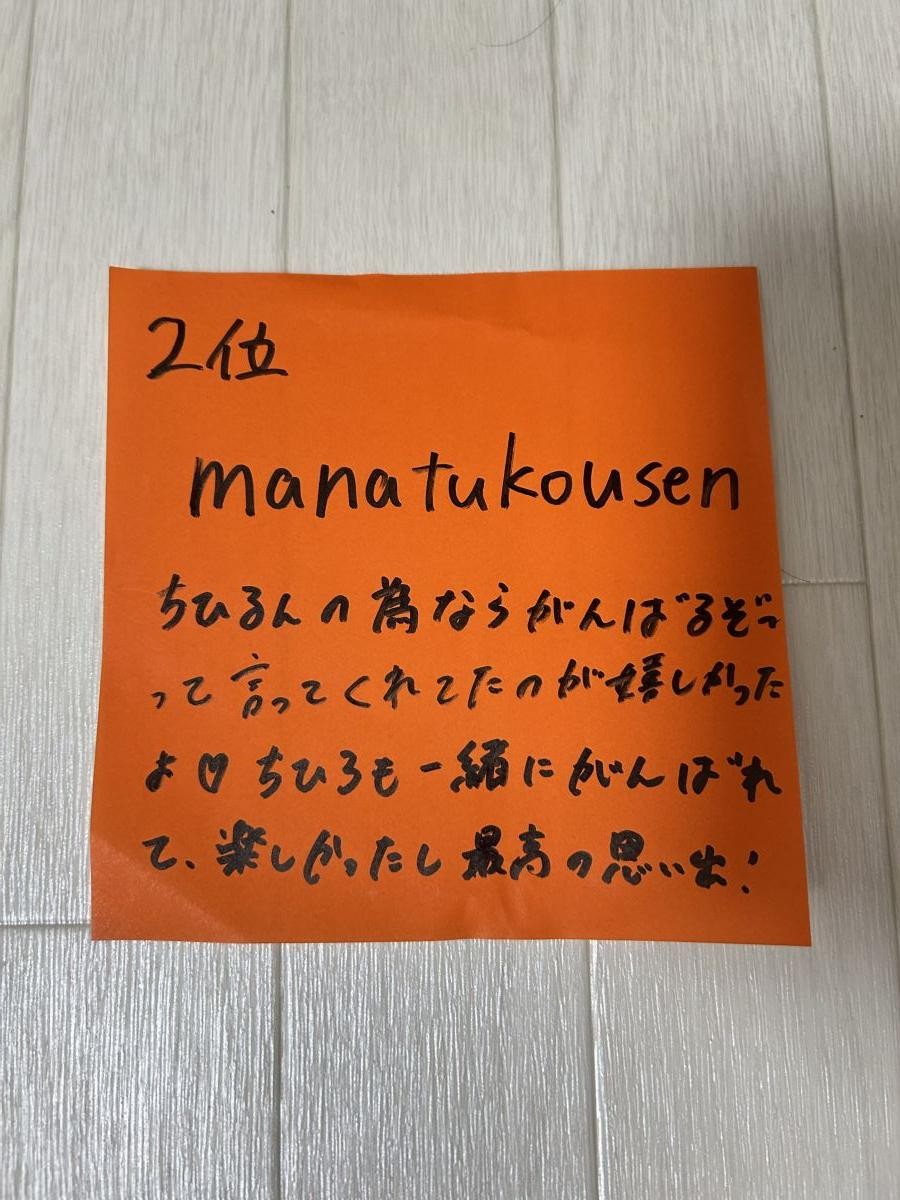 2位
manatukousen
ちひるんの為ならがんばるぞっ
って言ってくれてたのが嬉しかった
よ♡ちひろも一緒にがんばれ
て、楽しかったし最高の思い出!